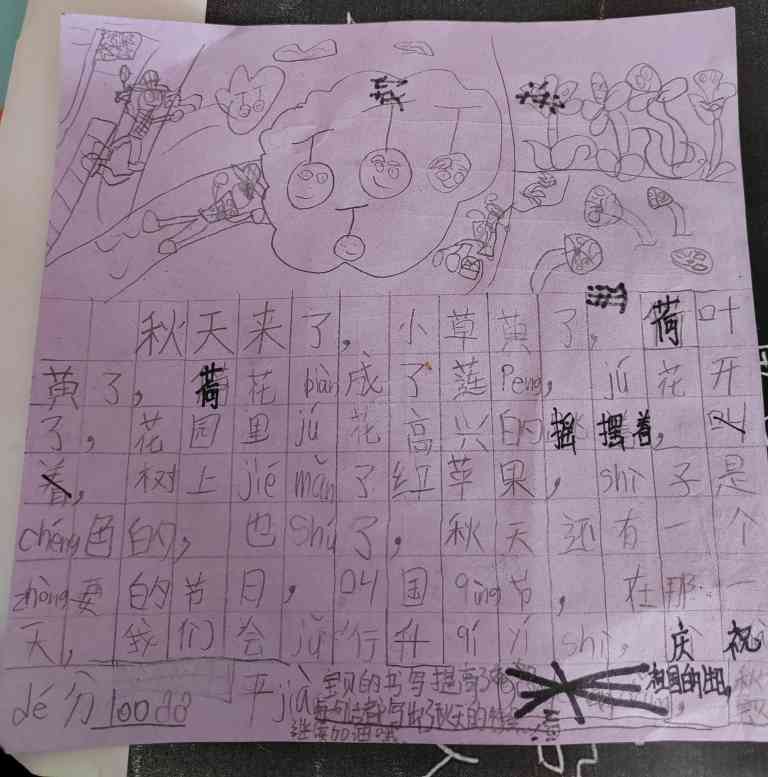 秋天来了，小草黄了，荷叶
黄了，荷花biàn成了莲peng，jú花开
了，花园里jú花高兴的摇摆着，叫
着，树上jié mǎn了红苹果，shì子是
chéng色的，也shú了，秋天还有一个
zhòng要的节日，叫国qìng节，在那一
天，我们会jǔ行升qí yí shì，庆祝
祖国的
dé分100 do 平jià
宝贝的书写提高了
写出了秋天的特
继续加油哦